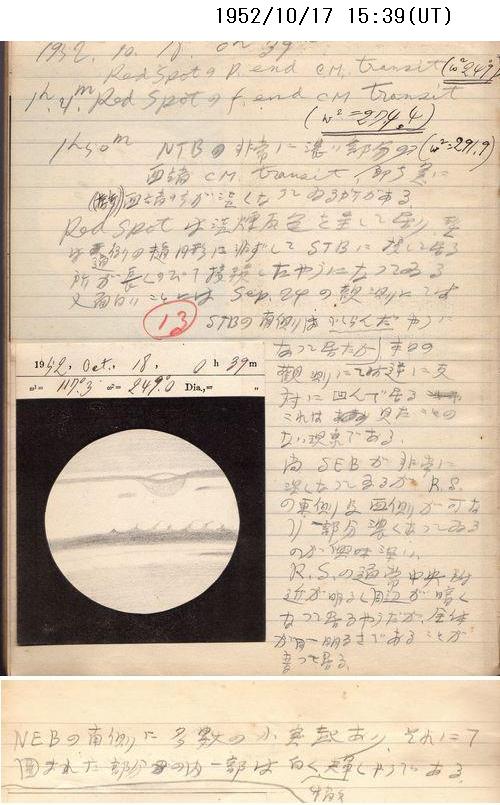 1952/10/17 15:39(UT)
1952. 10. 18. 0h 39m
Red Spot の P. end C.M. transit (ω²249°)
1h.4m. Red Spot の f. end C.M. transit
(ω²=274.4)
1h30m NTB の非常に濃い部分の (ω²=291.9)
西端 C.M. transit
西端の方が濃くなってゐる所がある
Red Spot は淡煙灰色を呈して居り、
の楕円形に非ずして STB に接して居る
所が長く 接続したやうになってゐる
又面白いことには Sep. 24 の観測にては
13 STBの南側は ふくらんだやうに
なって居たが、本日の
観測にては逆に反
対に凹んで居る
これは 見たことの
ない現象である。
尚 SEB が非常に
淡くなってゐるが R.S.
の東側及西側が可な
り一部分濃くなってゐる
のが興味深い。
R.S.の通常中央附
近が明るく周辺が暗く
なって居るやうだが、全体
が同一明るさであることが
変って居る。
1952, Oct. 18, 0h 39m
ω¹= 117°.3 ω²= 249°.0 Dia.,= "
NEBの南側に多数の小突起あり、それにて
囲まれた部分の内一部は白く輝くやうである